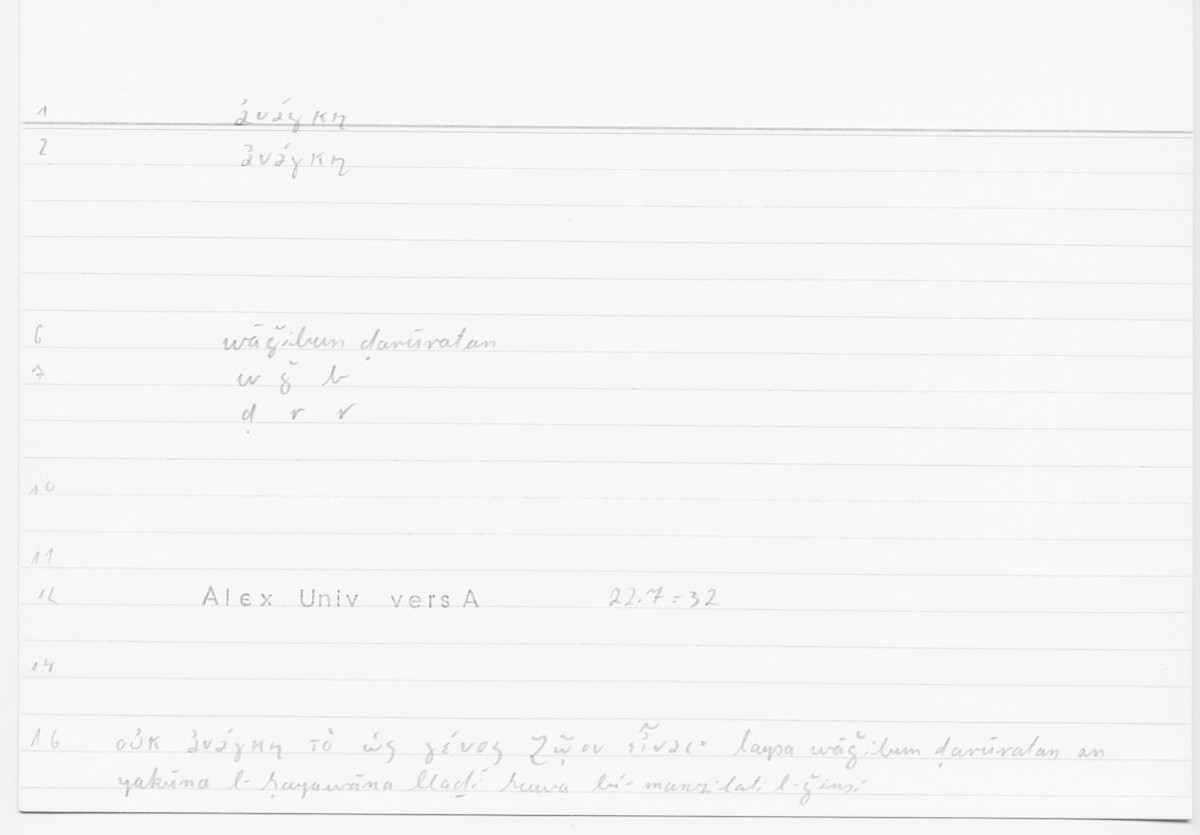 1 ἀνάγκη
2 ἀνάγκη
6 wāǧibun ḍarūratan
7 w ǧ b
ḍ r r
10
11
12 Alex Univ vers A 22.7 = 32
14
16 οὐκ ἀνάγκη τὸ ὡς γένος ζῷον εἶναι· laysa wāǧibun ḍarūratan an
yakūna l-ḥayawāna lladī huwa bi-manzilati l-ǧinsi